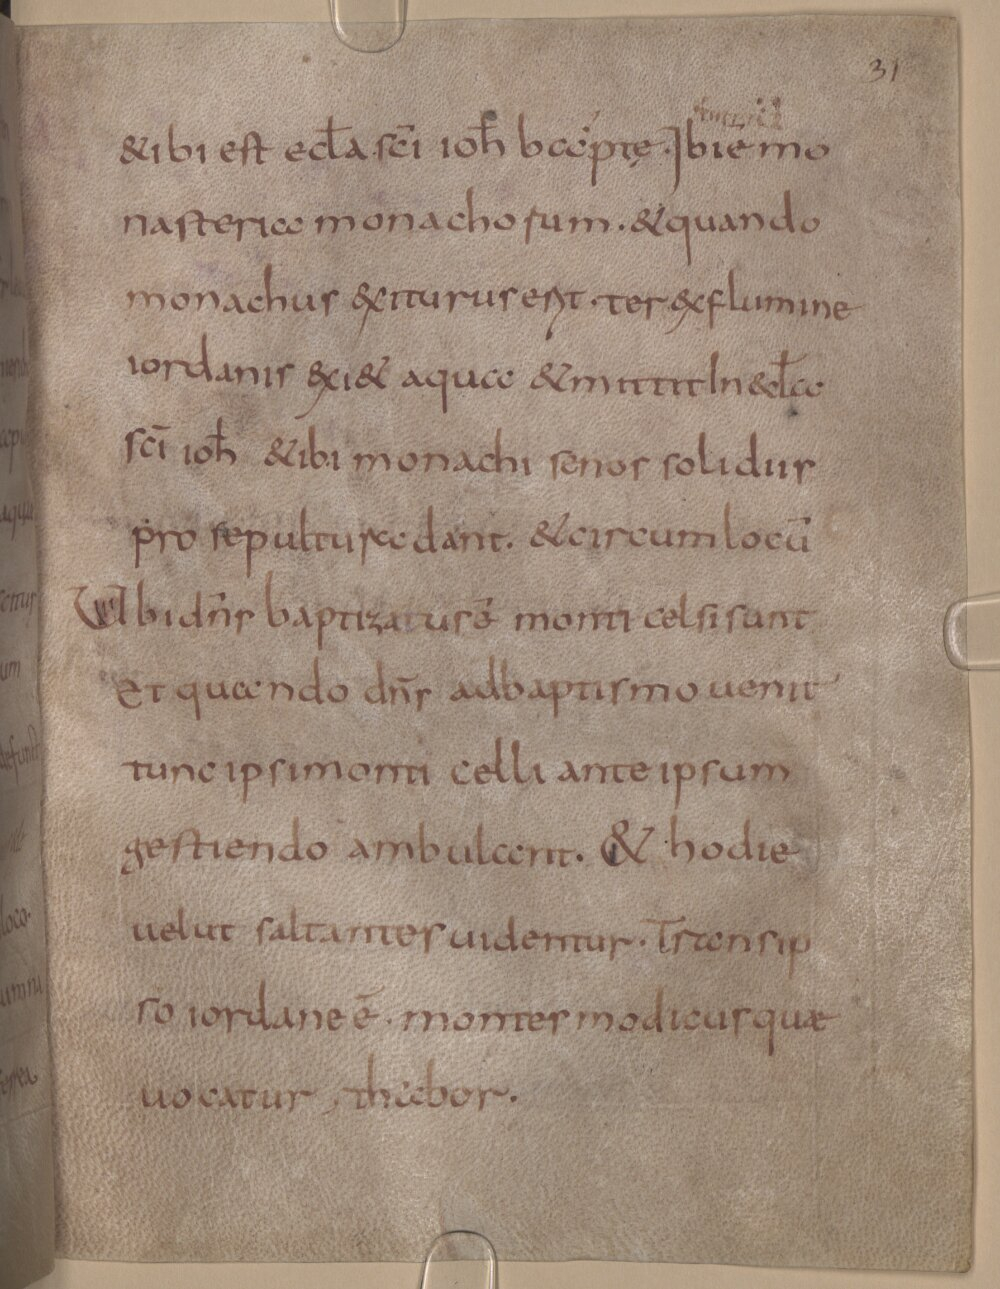 31
&ibi est ecła sc̄i ioh̄ bap̄tę. Ibi e mo
nasteria monachorum. & quando
monachus &iturus est. ter &flumine
iordanis &i& aqua & mittit In &cła
sc̄i ioh̄ &ibi monachi senos solidus
pro sepultura dant. & circum locū
Ubi dn̄s baptizatus ē monti celsi sunt
Et quando dn̄s ad baptismo uenit
tunc ipsi monti celli ante ipsum
gestiendo ambulant. & hodie
uelut saltantes uidentur. Trans ip
so iordane ē. montes modicus quæ
uocatur thabor.